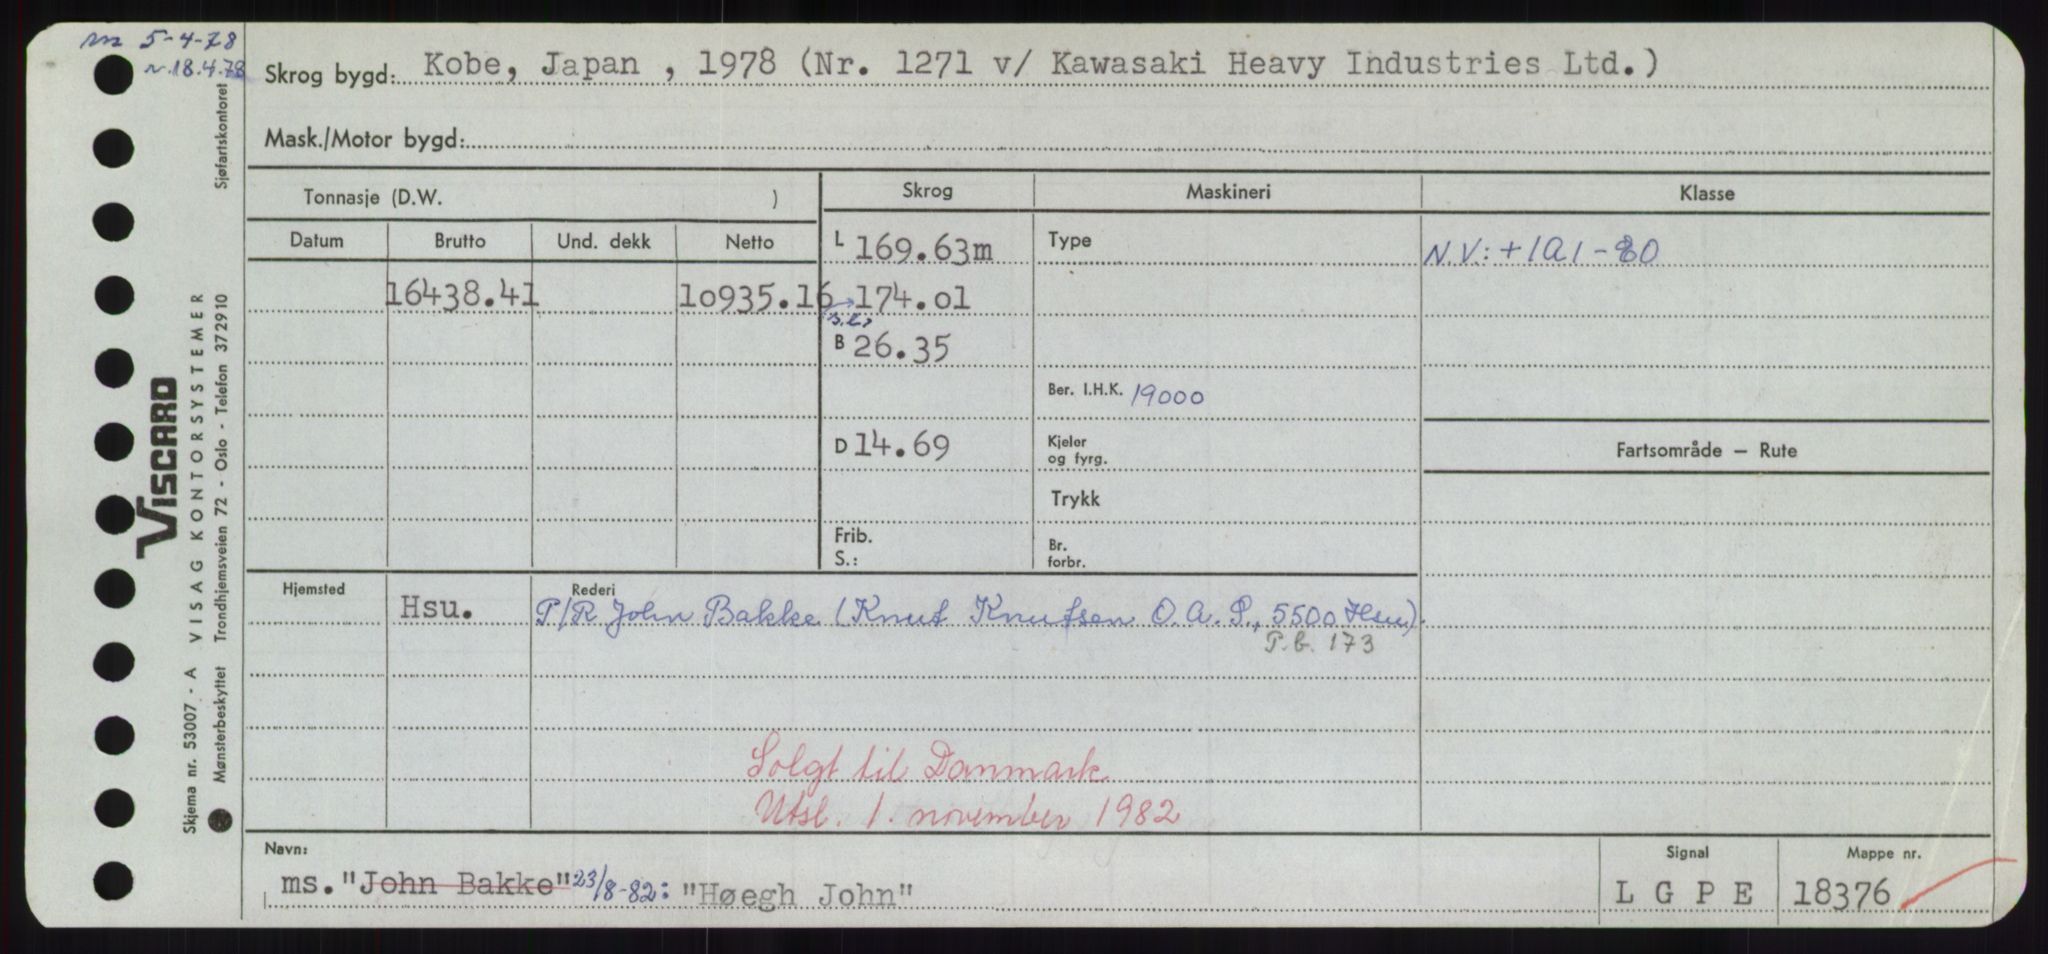 m 5-4-78
n. 18.4.78
Skrog bygd: Kobe, Japan , 1978 (Nr. 1271 v/ Kawasaki Heavy Industries Ltd.)
Mask./Motor bygd:
Tonnasje (D.W. )
Skrog
Maskineri
Klasse
Datum
Brutto
Und. dekk
Netto
L 169.63m
Type
N.V.: +1A1-80
16438.41
10935.16
174.01
B 26.35
Ber. I.H.K. 19000
D 14.69
Kjeler
og fyrg.
Fartsområde – Rute
Trykk
Frib.
S.:
Br.
forbr.
Hjemsted
Hsu.
Rederi
P/R John Bakke (Knut Knutsen O.A.S., 5500 Hsu)
P.b. 173
Solgt til Danmark
Utsl. 1. november 1982
Navn:
ms. "John Bakke" 23/8-82: "Høegh John"
Signal
L G P E
Mappe nr.
18376
VISCARD
Skjema nr. 53007 - A VISAG KONTORSYSTEMER
Mønsterbeskyttet Trondhjemsveien 72 - Oslo - Telefon 372910 Sjøfartskontoret